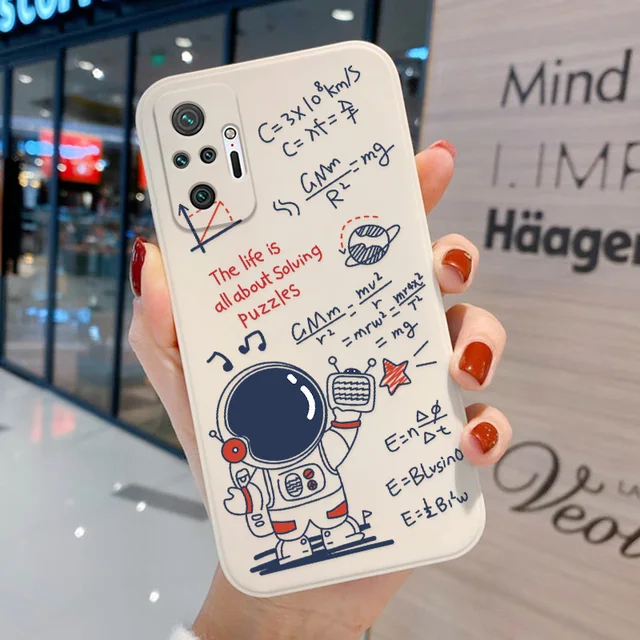 C=3×10⁸km/s
C=λt=Δ/T
GMm/R²=mg
The life is
all about Solving
puzzles
GMm/r²=mv²/r
=mrw²=mr4π²/T²
=mg
E=nΔϕ/Δt
E=BLvsinθ
E=½Bl²w
Mind
Häagen